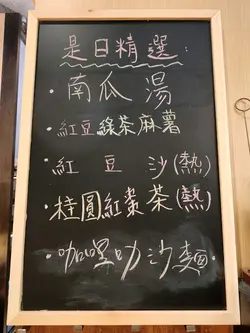 是日精選：
·南瓜湯
·紅豆綠茶麻薯
·紅豆沙(熱)
·桂圓紅棗茶(熱)
·咖喱叻沙麵